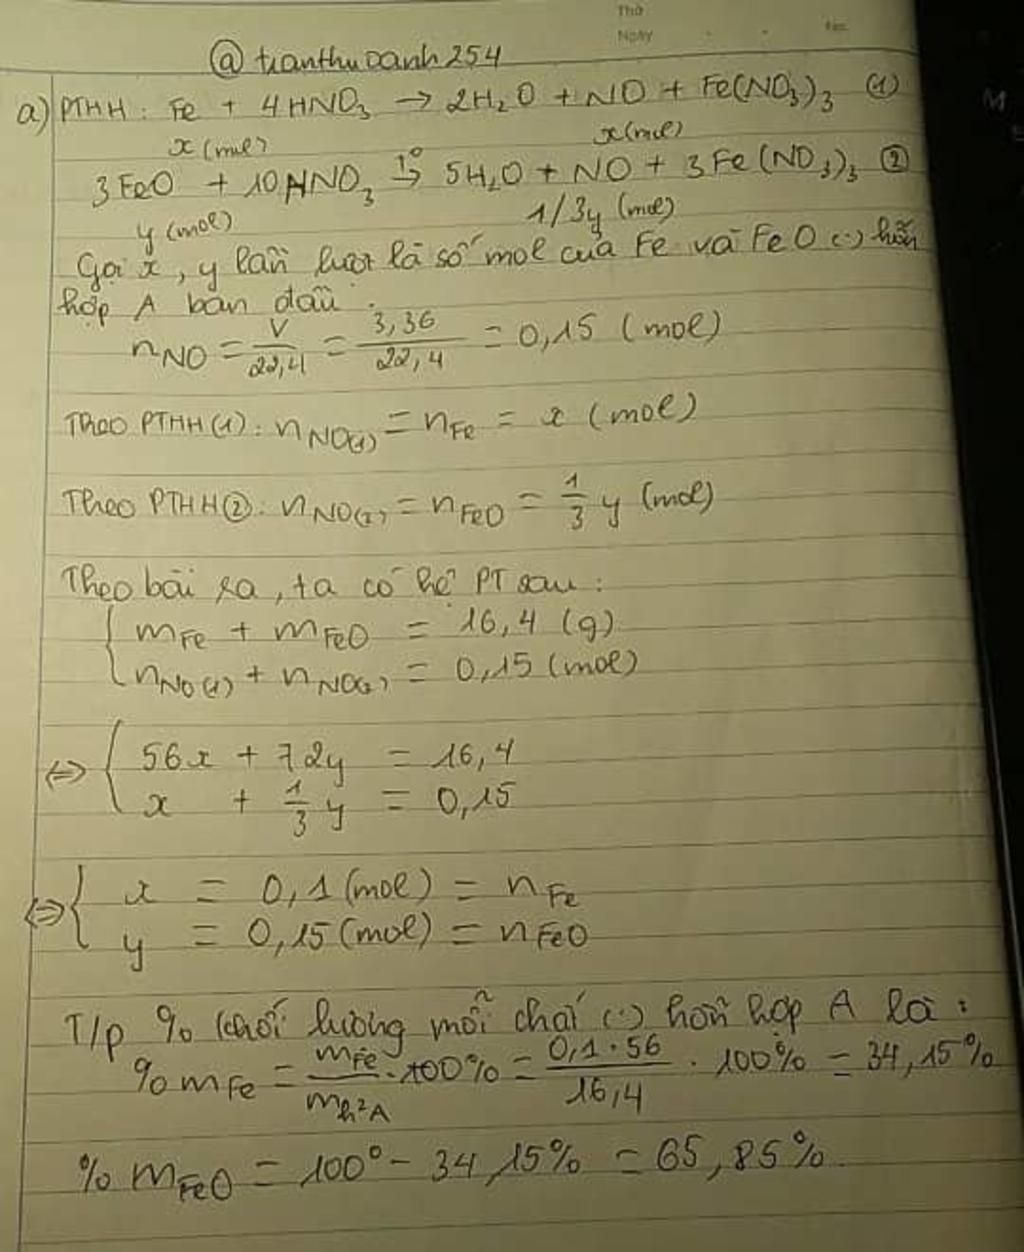 Thứ
Ngày No.
@tranthuoanh254
a) PTHH: Fe + 4HNO₃ → 2H₂O + NO + Fe(NO₃)₃ (1)
x(mol) x(mol)
3FeO + 10HNO₃ t°→ 5H₂O + NO + 3Fe(NO₃)₃ ②
y (mol) 1/3y (mol)
Gọi x, y lần lượt là số mol của Fe và FeO (·) hỗn
hợp A ban đầu.
nNO = V/22,4 = 3,36/22,4 = 0,15 (mol)
Theo PTHH(1): nNO(1) = nFe = x (mol)
Theo PTHH②: nNO(2) = nFeO = 1/3 y (mol)
Theo bài ra, ta có hệ PT sau:
{ mFe + mFeO = 16,4 (g)
nNO(1) + nNO(2) = 0,15 (mol)
⇔ { 56x + 72y = 16,4
x + 1/3 y = 0,15
⇔ { x = 0,1 (mol) = nFe
y = 0,15 (mol) = nFeO
T/p % khối lượng mỗi chất (·) hỗn hợp A là:
% mFe = mFe/mh²A . 100% = 0,1.56/16,4 . 100% = 34,15%
% mFeO = 100° - 34,15% = 65,85%.
M